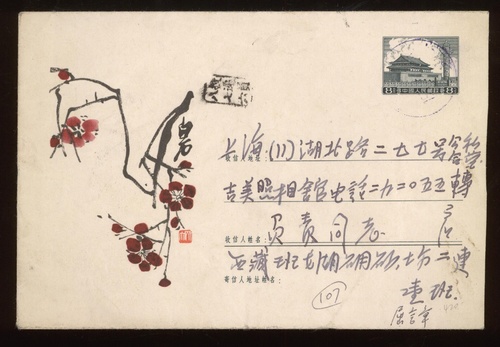 8分中国人民邮政8分
白石
上海(11)湖北路二七七號
收信人地址:
吉美照相館电話二九二〇五五轉
负责同志
收信人姓名:
西藏班戈湖硼砂
二連
寄信人地址姓名:
壹班
(107)